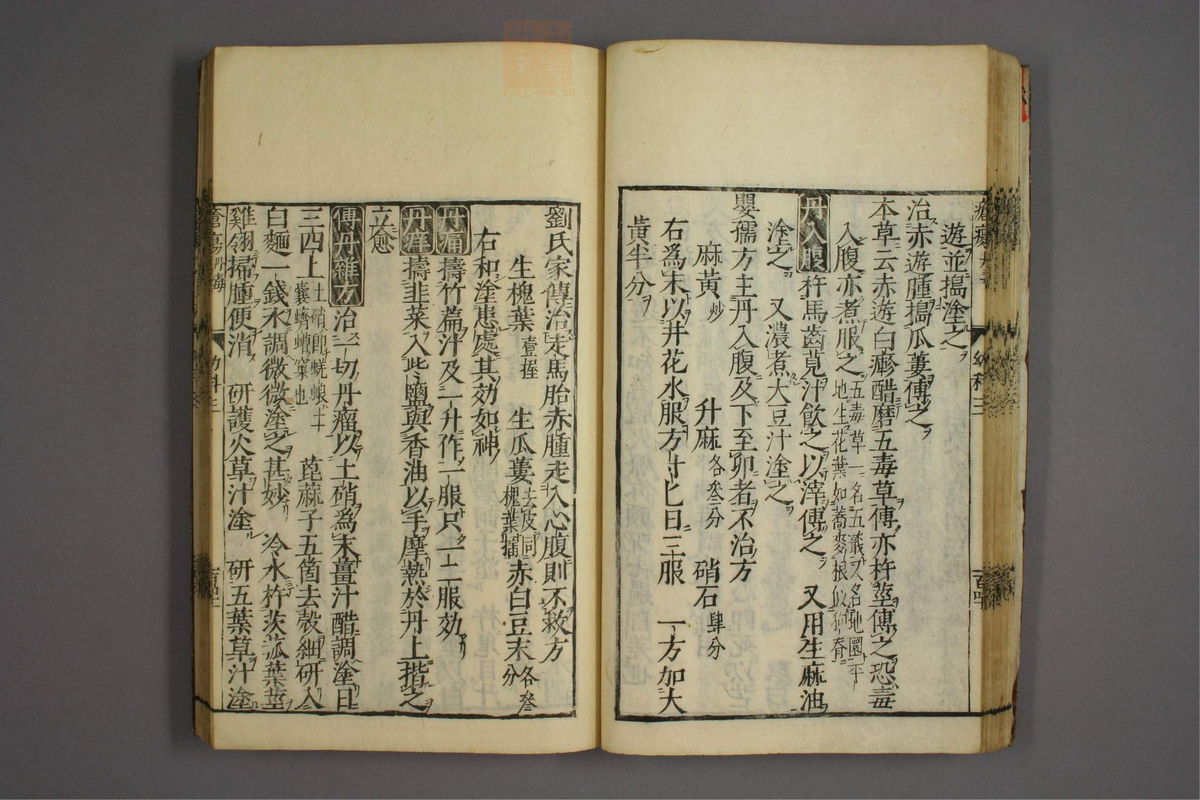 遊並搗塗之ヲ
治赤遊腫搗瓜蔞傅之ヲ
本草云赤遊白癬醋磨五毒草傅亦杵莖傅之恐毒
入腹亦煮服之五毒草一名五蕺又名虵𦉈平
地生花葉如蕎麥根似狗脊
丹入腹 杵馬齒莧汁飲之以滓傅之 又用生麻油
塗之 又濃煮大豆汁塗之
嬰孺方主丹入腹及下至卵者不治方
麻黃炒 升麻各叄分 硝石肆分
右爲末以井花水服方寸匕日三服 一方加大
黃半分
劉氏家傳治走馬胎赤腫走入心腹則不救方
生槐葉壹握 生瓜蔞去皮同槐葉搗 赤白豆末各叄分
右和塗患處其効如神
丹痛 擣竹篇汁及一升作二服只一二服効
丹痒 擣韭菜入些鹽與香油以手摩熱於丹上揩之
立愈
傅丹雜方 治一切丹瘤以土硝爲末薑汁醋調塗日
三四上土硝即蜣蜋土裏蠐螬窠也 蓖麻子五箇去殼細研入
白麵一錢水調微微塗之甚妙 冷水杵茨菰葉莖
雞翎掃腫便消 研護火草汁塗 研五葉草汁塗
幼科三